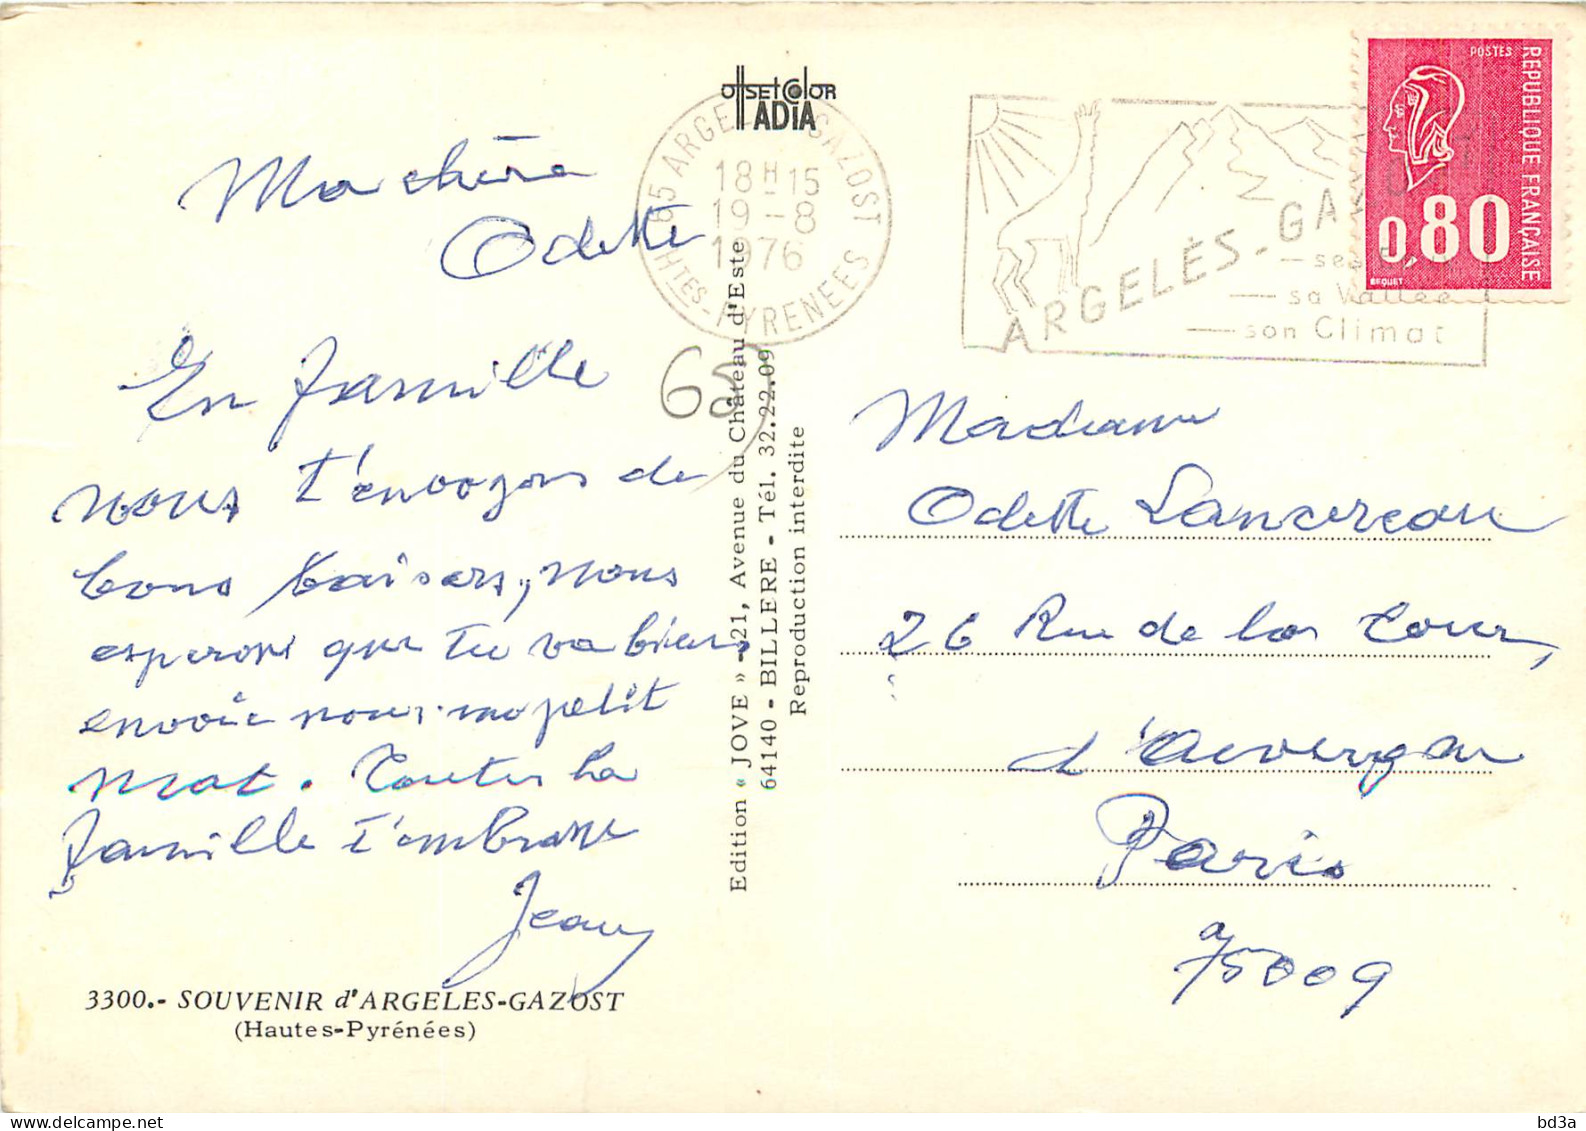 Ma chère
Odette
En famille
nous t'envoyons de
bons baisers, nous
esperons que tu va bien
envoie nous un petit
mot. Toute la
famille t'embrasse
Jeany
3300.- SOUVENIR d'ARGELES-GAZOST
(Hautes-Pyrénées)
offset color
ADIA
65 ARGELES-GAZOST
18H-15
19-8
1976
HTES-PYRENEES
65
Edition « JOVE » - 21, Avenue du Château d'Este
64140 - BILLERE - Tél. 32.22.09
Reproduction interdite
ARGELÈS-GAZOST
ses
sa Vallée
son Climat
POSTES
REPUBLIQUE FRANÇAISE
0,80
BEQUET
Madame
Odette Lancereau
26 Rue de la Tour,
d'Auvergne
Paris
75009
bd3a